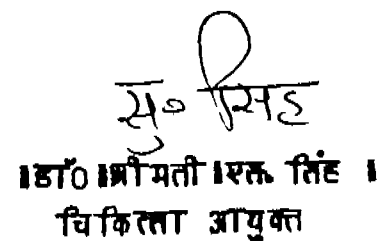 सु० सिंह
।डा० ।श्रीमती ।एस. सिंह ।
चिकित्सा आयुक्त